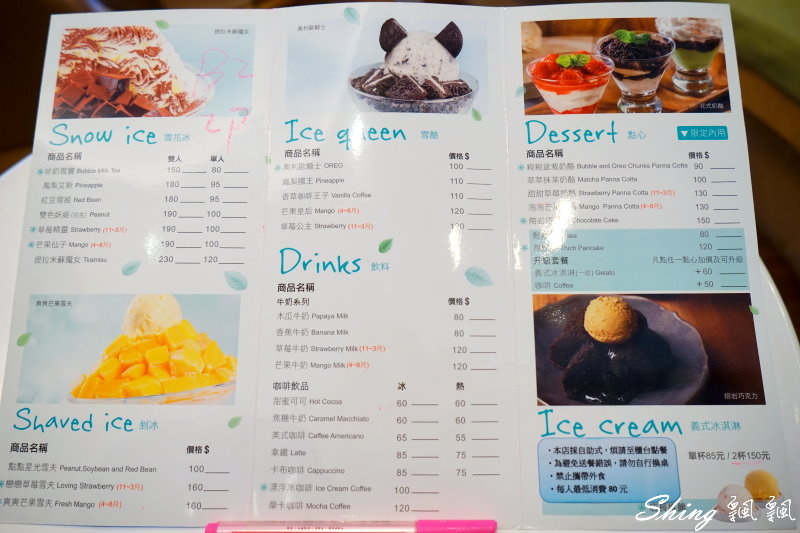 提拉米蘇魔女
B2
2P
Snow ice 雪花冰
商品名稱 雙人 單人
珍奶雪寶 Bubble Milk Tea 150 80
鳳梨艾斯 Pineapple 180 95
紅豆雪姬 Red Bean 180 95
雙色妖姬(花生) Peanut 190 100
草莓精靈 Strawberry (11~3月) 190 100
芒果仙子 Mango (4~8月) 190 100
提拉米蘇魔女 Tiramisu 230 120
爽爽芒果雪夫
Shaved ice 剉冰
商品名稱 價格 $
點點星光雪夫 Peanut,Soybean and Red Bean 100
戀戀草莓雪夫 Loving Strawberry (11~3月) 160
爽爽芒果雪夫 Fresh Mango (4~8月) 160
奧利歐騎士
Ice queen 雪酪
商品名稱 價格 $
奧利歐騎士 OREO 100
鳳梨國王 Pineapple 110
香草咖啡王子 Vanilla Coffee 110
芒果皇后 Mango (4~8月) 120
草莓公主 Strawberry (11~3月) 120
Drinks 飲料
商品名稱
牛奶系列 價格 $
木瓜牛奶 Papaya Milk 80
香蕉牛奶 Banana Milk 80
草莓牛奶 Strawberry Milk (11~3月) 120
芒果牛奶 Mango Milk (4~8月) 120
咖啡飲品 冰 熱
甜蜜可可 Hot Cocoa 60 60
焦糖牛奶 Caramel Macchiato 60 60
美式咖啡 Caffee Americano 65 55
拿鐵 Latte 85 75
卡布咖啡 Cappuccino 85 75
漂浮冰咖啡 Ice Cream Coffee 100
摩卡咖啡 Mocha Coffee 120
花式奶酪
Dessert 點心 ▼限定內用
商品名稱 價格 $
親親盆栽奶酪 Bubble and Oreo Chunks Panna Cotta 90
萃萃抹茶奶酪 Matcha Panna Cotta 100
甜甜草莓奶酪 Strawberry Panna Cotta (11~3月) 130
泡泡芒果奶酪 Mango Panna Cotta (4~8月) 130
熔岩 Chocolate Cake 150
鬆 80
厚 Thick Pancake 120
升級套餐 凡點任一點心加價及可升級
義式冰淇淋(一球) Gelato +60
咖啡 Coffee +50
熔岩巧克力
Ice cream 義式冰淇淋
單杯85元 / 2杯150元
・本店採自助式，煩請至櫃台點餐
・為避免送餐錯誤，請勿自行換桌
・禁止攜帶外食
・每人最低消費 80 元
Shing 飄飄